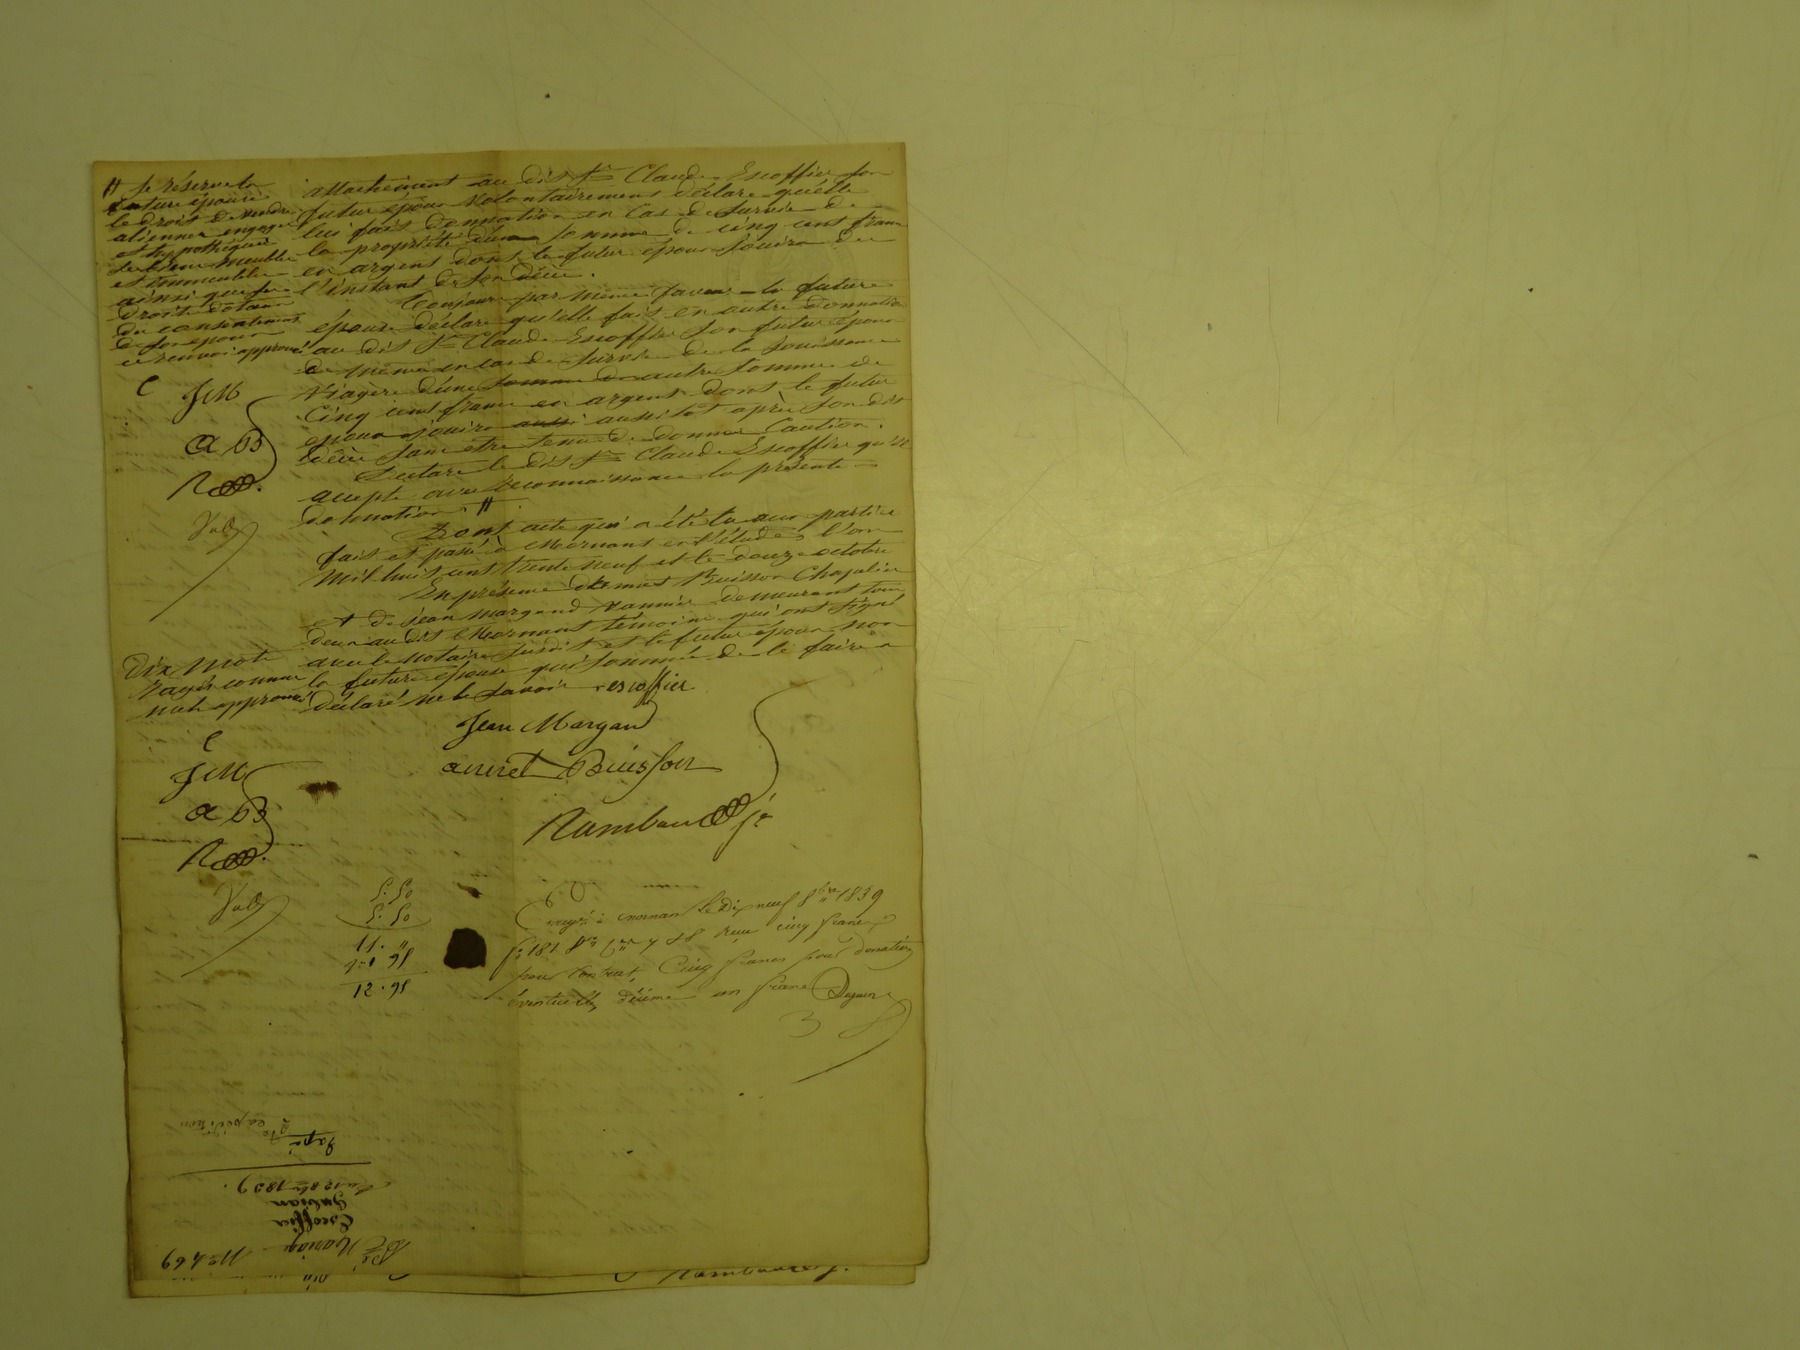 attachement au dit Sr Claude Escoffier son
futur époux volontairement déclare qu'elle
lui fait donnation en cas de survie de
la propriété d'une somme de cinq cent francs
en argent dont le futur époux jouira dès
l'instant de son décès.
Toujours par même faveur la future
épouse déclare qu'elle fait en outre donnation
au dit Sr Claude Escoffier son futur époux
de même en cas de survie de la jouissance
viagère d'une somme de autre somme de
cinq cent francs en argent dont le futur
époux jouira aussi aussitôt après son dit
décès sans etre tenu de donner caution.
Déclare le dit Sr Claude Escoffier qu'il
accepte avec reconnaissance la présente
donnation. #
Dont acte qui a été lu aux parties
fait et passé à Mornant en l'étude l'an
mil huit cent trente neuf et le douze octobre
En présence d'Annet Buisson Chapelier
et de Jean Margand vannier demeurant tous
deux au dit Mornant témoins qui ont signé
avec le notaire susdit et le futur époux non
la future épouse qui sommée de le faire a
déclaré ne le savoir. escoffier
# Se réserve la
future épouse
le droit de vendre
alienner engager
et hypothéquer
ses biens meubles
et immeubles
ainsi que ses
droits dotaux
du consentement
de son époux
ce renvoi approuvé
E
JM
a B
R
Dix mots
rayés comme
nuls approuvés
E
JM
a B
R
Jean Margan
annet Buisson
Rambaud je
5.50
5.50
11. "
1-98
12.98
Enregé à mornant le Dix neuf 8bre 1839
fo 181 Ro Ces 7 et 8 reçu cinq francs
pour contrat, Cinq francs pour donation
éventuelle, décime un franc
Expé
2de expédition
Du 12 8bre 1839.
Escoffier
Mariage No 469
Rambaud j.